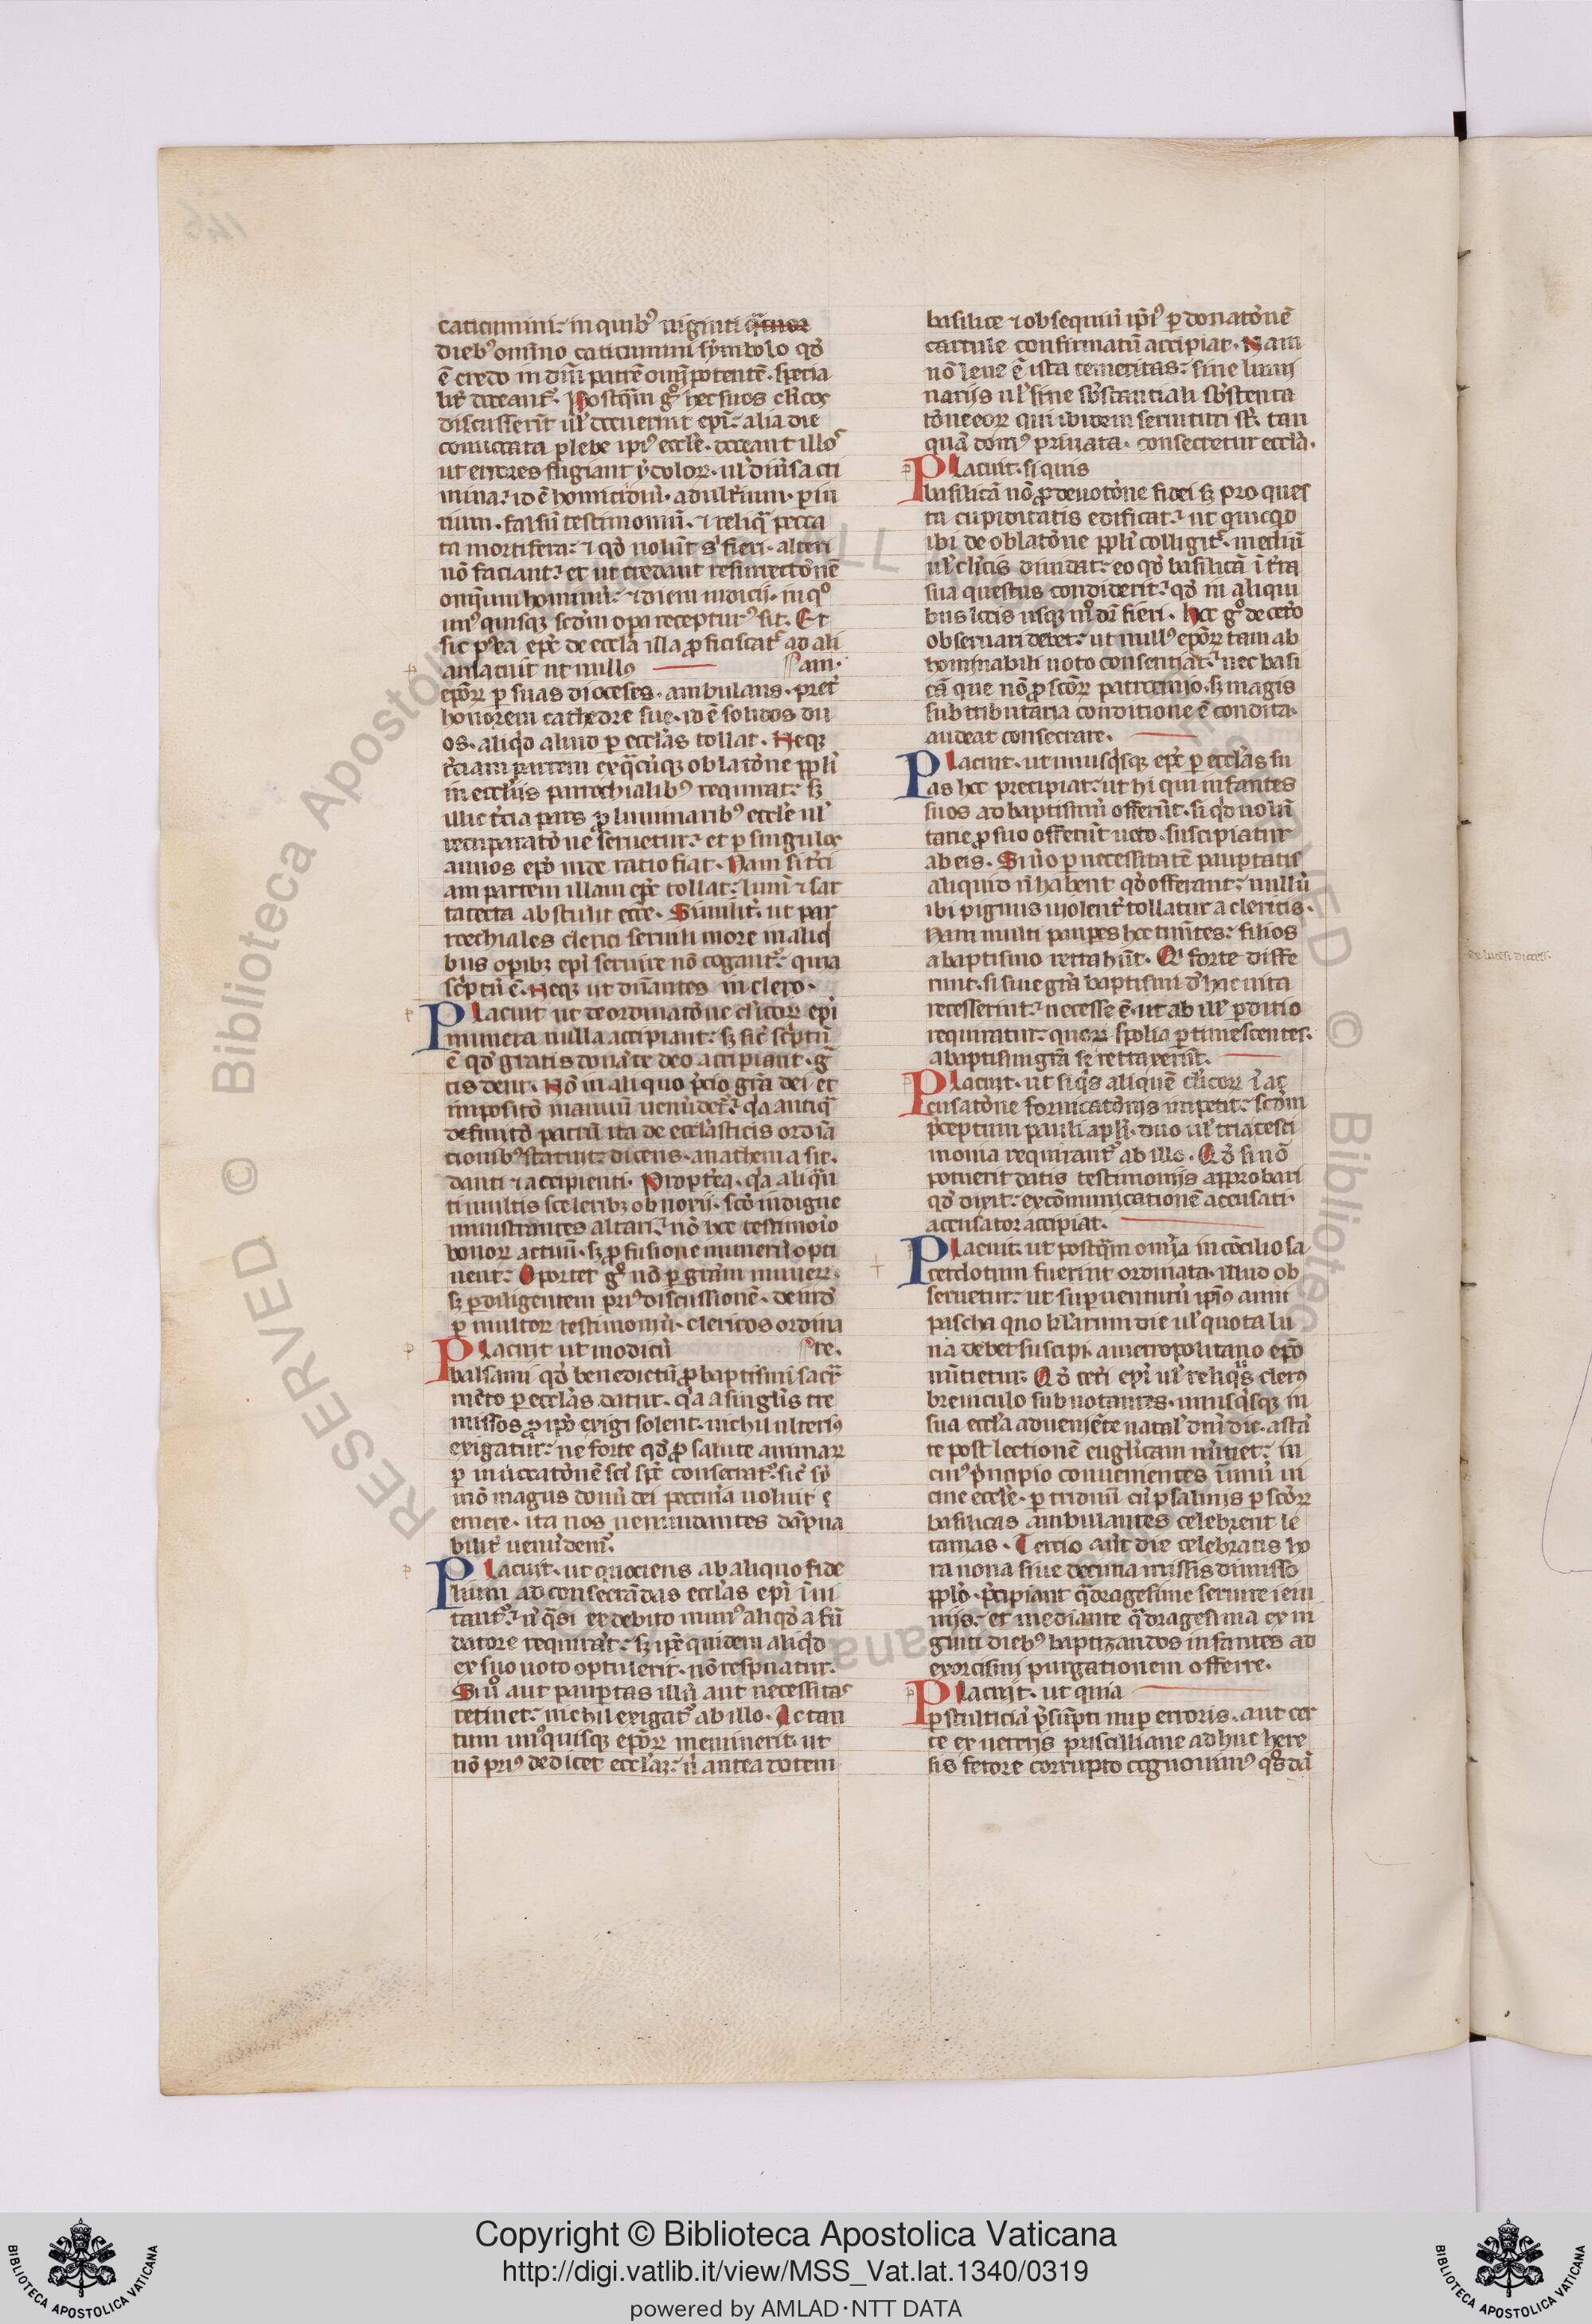 caticumini: in quib⁹ uiginti
dieb⁹ omīno caticumini symbolo qd̓
ē credo in dm̄ patrē omīpotentē. specia
lit̓ doceant᷑. Postq̄m g̊ hec suos cl̓icos
discusserīt ul̓ docuerint ep̄i: alia die
conuocata plebe ip̄i⁹ eccl̓e. doceant illos
ut errores fugiant ydolor̄. ul̓ diu̓sa cri
mina: id ē homicidiū. adult̓ium. periu
rium. falsū testimoniū. ⁊ reliq̄ pecca
ta mortifera: ⁊ qd̓ nolūt s̓ fieri. alteri
nō faciant: et ut credant resurrectōnē
omīum hominū: ⁊ diem iudicij. in q̊
un⁹quisq; scd̓m opa receptur⁹ sit. Et
sic p̓ea ep̄c de eccl̓a illa proficiscat᷑ ad ali
am.
lacuit ut nullus
ep̄or̄ p suas dioceses. ambulans. pret̓
honorem cathedre sue. id ē solidos du
os. aliq̓d aliud p eccl̓as tollat. Neq;
t̓ciam partem ex q̄cūq; oblatōne ppl̓i
in eccl̓ijs parrochialib⁹ requirat: sꝫ
illa t̓cia pars p luminarib⁹ eccl̓e ul̓
recuparatōne seruetur: et p singulos
annos ep̄o inde ratio fiat. Nam si t̓ci
am partem illam ep̄c tollat: lumē ⁊ sar
tatecta abstulit ecc̄e. Similit̓. ut par
rochiales clerici seruili more in aliq̓
bus opibꝫ ep̄i seruire nō cogant᷑: quia
sc̓ptū ē. Neq; ut dn̄antes in clero.
Placuit ut de ordinatōne cl̓icor̄ ep̄i
munera nulla accipiant: sꝫ sic̓ sc̓ptū
ē qd̓ gratis donāte deo accipiant. ḡ
tis dent. Nō in aliquo p̓cio gr̄a dei et
impositō manuū uenūdet᷑: q̓a antiq̄
definitō patrū ita de eccl̓asticis ordīa
tionib⁹ statuit: dicens. anathema sit.
danti ⁊ accipienti. Propt̓ea. q̓a aliq̄n
ti multis sceleribꝫ obnoxij. sc̄o indigne
ministrantes altari: nō hoc testimoīo
bonor̄ actuū. sꝫ pfusione munerū opti
nent: Oportet g̊ nō p gr̄am muner̄.
sꝫ p diligentem pri⁹ discussionē. deindē
p multor̄ testimoniū. clericos ordina
re.
Placuit ut modicū
balsami qd̓ benedictū p baptismi sacr̄
mēto p eccl̓as datur. q̓a a singl̓is tre
missos p ip̄o exigi solent: nichil ulteri⁹
exigatur: ne forte qd̓ p salute animar̄
p inuocatōnē sc̄i sp̄c consecrat᷑. sic̓ sy
mō magus donū dei peccnīa uoluit
emere. ita nos uenundantes dāpna
bilit̓ uenūdem⁹.
Placuit. ut quociens ab aliquo fide
lium ad consecrādas eccl̓as ep̄i īui
tant᷑: n̄ q̄si ex debito mun⁹ aliqd̓ a fū
datore requirāt: sꝫ ip̄e quidem aliq̓d
ex suo uoto optulerit. nō respuatur.
Siū aut paupertas illū aut necessitas
retinet: nichil exigat᷑ ab illo. Ac tan
tum un⁹quisq; ep̄or̄ meminerit. ut
nō pri⁹ dedicet eccl̓az: n̄ antea dotem
basilice ⁊ obsequiū ip̄i⁹ p donatōnē
cartule confirmatū accipiat. Nam
nō leue ē ista temeritas: sine lumi
narijs ul̓ sine sb̓stantiali sb̓stenta
tōne eor̄ qui ibidem seruituri st̄. tan
quā dom⁹ priuata. consecretur eccl̓a.
Placuit. si quis
basilicā nō p deuotōne fidei sꝫ pro ques
tu cupiditatis edificat: ut quicqd
ibi de oblatōne ppl̓i colligit᷑. mediū
ul̓ cl̓icis diuidat: eo qd̓ basilicā ī t̓ra
sua questus condiderit: qd̓ in aliqui
bus locis usq; m̊ dr̄ fieri. Hoc g̊ de cet̓o
obseruari debet: ut null⁹ ep̄or̄ tam ab
hominabili uoto consentiat: nec basi
cā que nō p sc̄or̄ patrocinio. sꝫ magis
sub tributaria conditione ē condita.
audeat consecrare.
Placuit. ut unusq̓sq; ep̄c p eccl̓as su
as hoc precipiat: ut hi qui infantes
suos ad baptismū offerūt. si q̓d uolūn
tarie p suo offerūt uoto. suscipiatur
ab eis. Siūo p necessitatē pauptatis
aliquid n̄ habent qd̓ offerant: nullū
ibi pignus uiolent̓ tollatur a clericis.
Nam multi paupes hoc timētes: filios
a baptismo retrahūt. Qui forte diffe
runt. si siue gr̄a baptismi d̓ hac uita
recesserint: necesse ē. ut ab ill̓ p ditio
requiratur: quor̄ spolia ptimescentes.
a baptismi gr̄a se retraxerūt.
Placuit. ut siq̓s aliquē cl̓icor̄ ī ac
cusatōne fornicatōnis impetit: scd̓m
p̓ceptum pauli apl̓i. duo ul̓ tria testi
monia requirant᷑ ab illo. Qd̓ si nō
potuerit datis testimonijs approbari
qd̓ dixit: excōmunicationē accusati.
accusator accipiat.
Placuit: ut postq̄m omīa in cōcilio sa
cerdotum fuerint ordinata. illud ob
seruetur: ut supuenturū ip̄i⁹ anni
pascha quo kl̓arum die ul̓ quota lu
na debet suscipi. a metropolitano ep̄o
nūtietur: Qd̓ cet̓i ep̄i ul̓ reliq̓s cler⁹
breuiculo subnotantes. unusq̓sq; in
sua eccl̓a adueniēte natal̓ dn̄i die. astā
te post lectionē eūgl̓icam nūtiet: in
cui⁹ p̓ncipio conuenientes ī unū ui
cine eccl̓e. p triduū cū psalmis p sc̄or̄
basilicas ambulantes celebrent le
tanias. Tercio aūt die celebratis ho
ra nona siue decima missis dimisso
ppl̓o. p̓cipiant q̄dragesime seruire ieiu
nijs: et mediante q̄dragesima ex ui
ginti dieb⁹ baptizandos infantes ad
exorcismi purgationem offerre.
Placuit. ut quia
p stulticiā p̓sūpti nup erroris. aut cer
te ex ueteris priscilliane adhuc here
sis fetore corrupto cognouim⁹ q̊sdā
Copyright © Biblioteca Apostolica Vaticana
http://digi.vatlib.it/view/MSS_Vat.lat.1340/0319
powered by AMLAD·NTT DATA
BIBLIOTECA APOSTOLICA VATICANA
BIBLIOTECA APOSTOLICA VATICANA